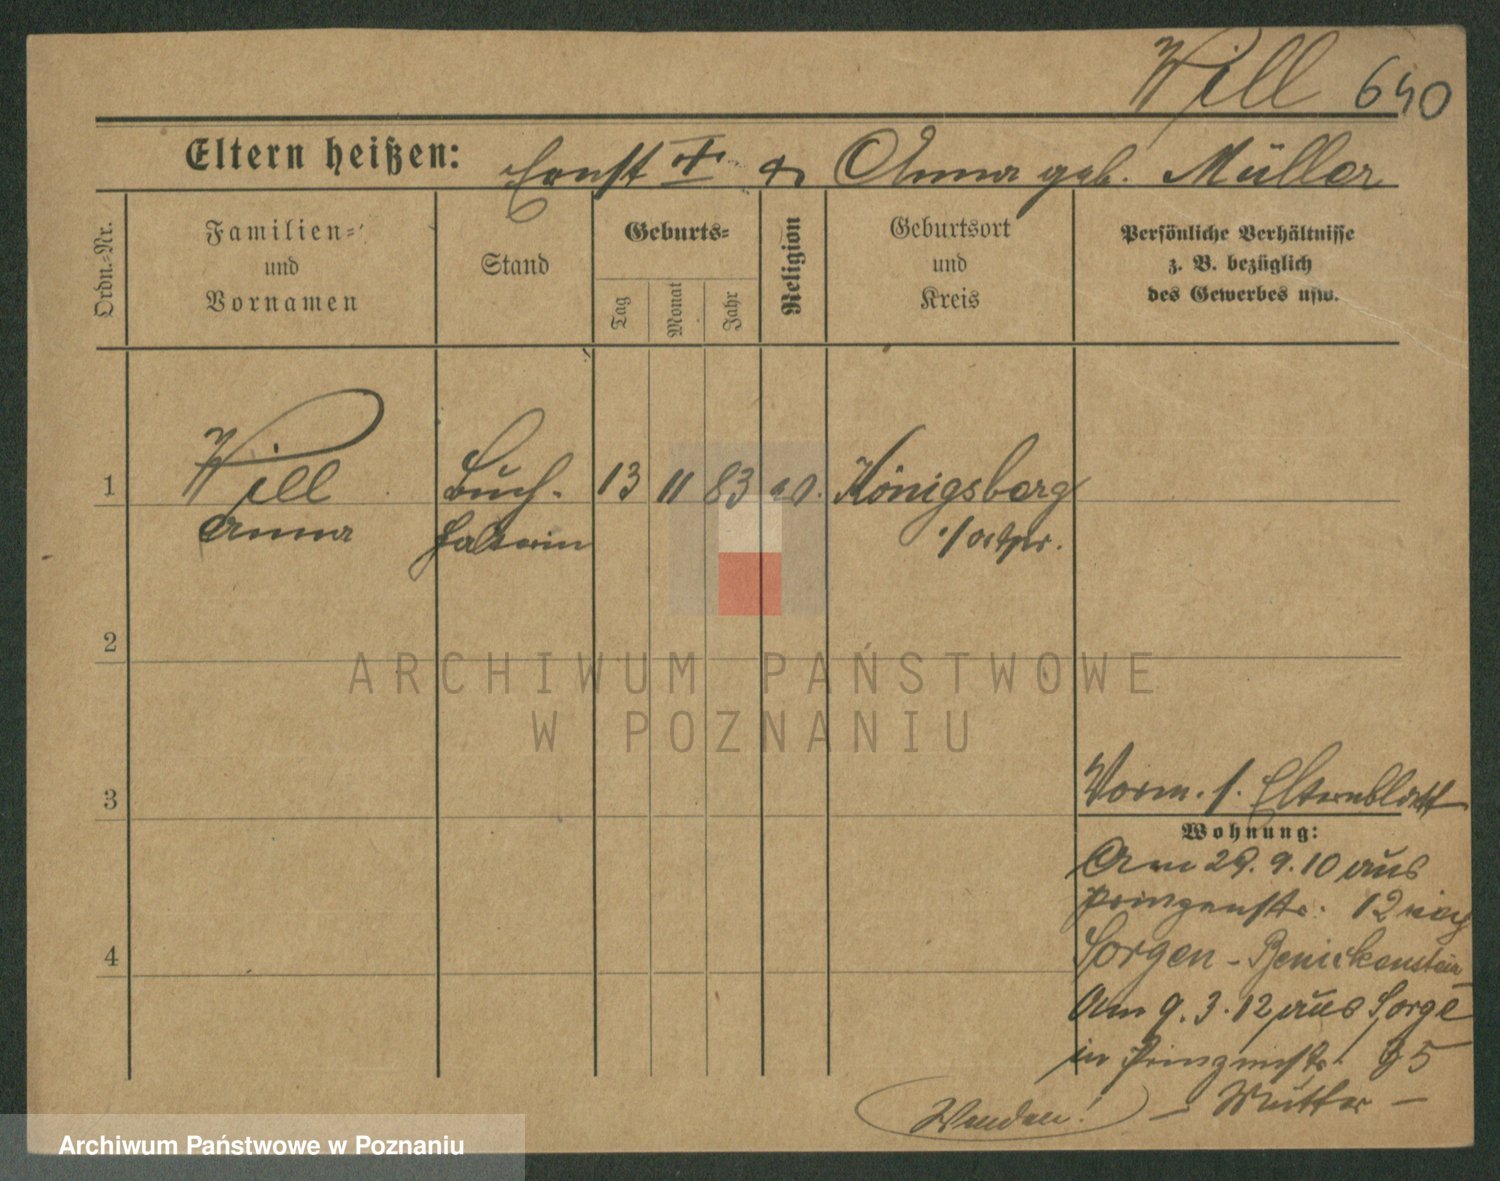 Will 640
Eltern heißen: Ernst † & Anna geb. Müller
Ordn.-Nr.
Familien-
und
Vornamen
Stand
Geburts-
Tag
Monat
Jahr
Religion
Geburtsort
und
Kreis
Persönliche Verhältnisse
z. B. bezüglich
des Gewerbes usw.
1 Will Buch- 13 11 83 ev. Königsberg
Anna halterin i/ostpr.
2
ARCHIWUM PAŃSTWOWE
W POZNANIU
3
Vorm. s. Elternblatt
Wohnung:
Am 29. 9. 10 aus
Prinzenstr. 12 nach
Sorgen - Benickenstein
4
Am 9. 3. 12 aus Sorge
in Prinzenstr. 85
- Mutter -
Wenden!
Archiwum Państwowe w Poznaniu